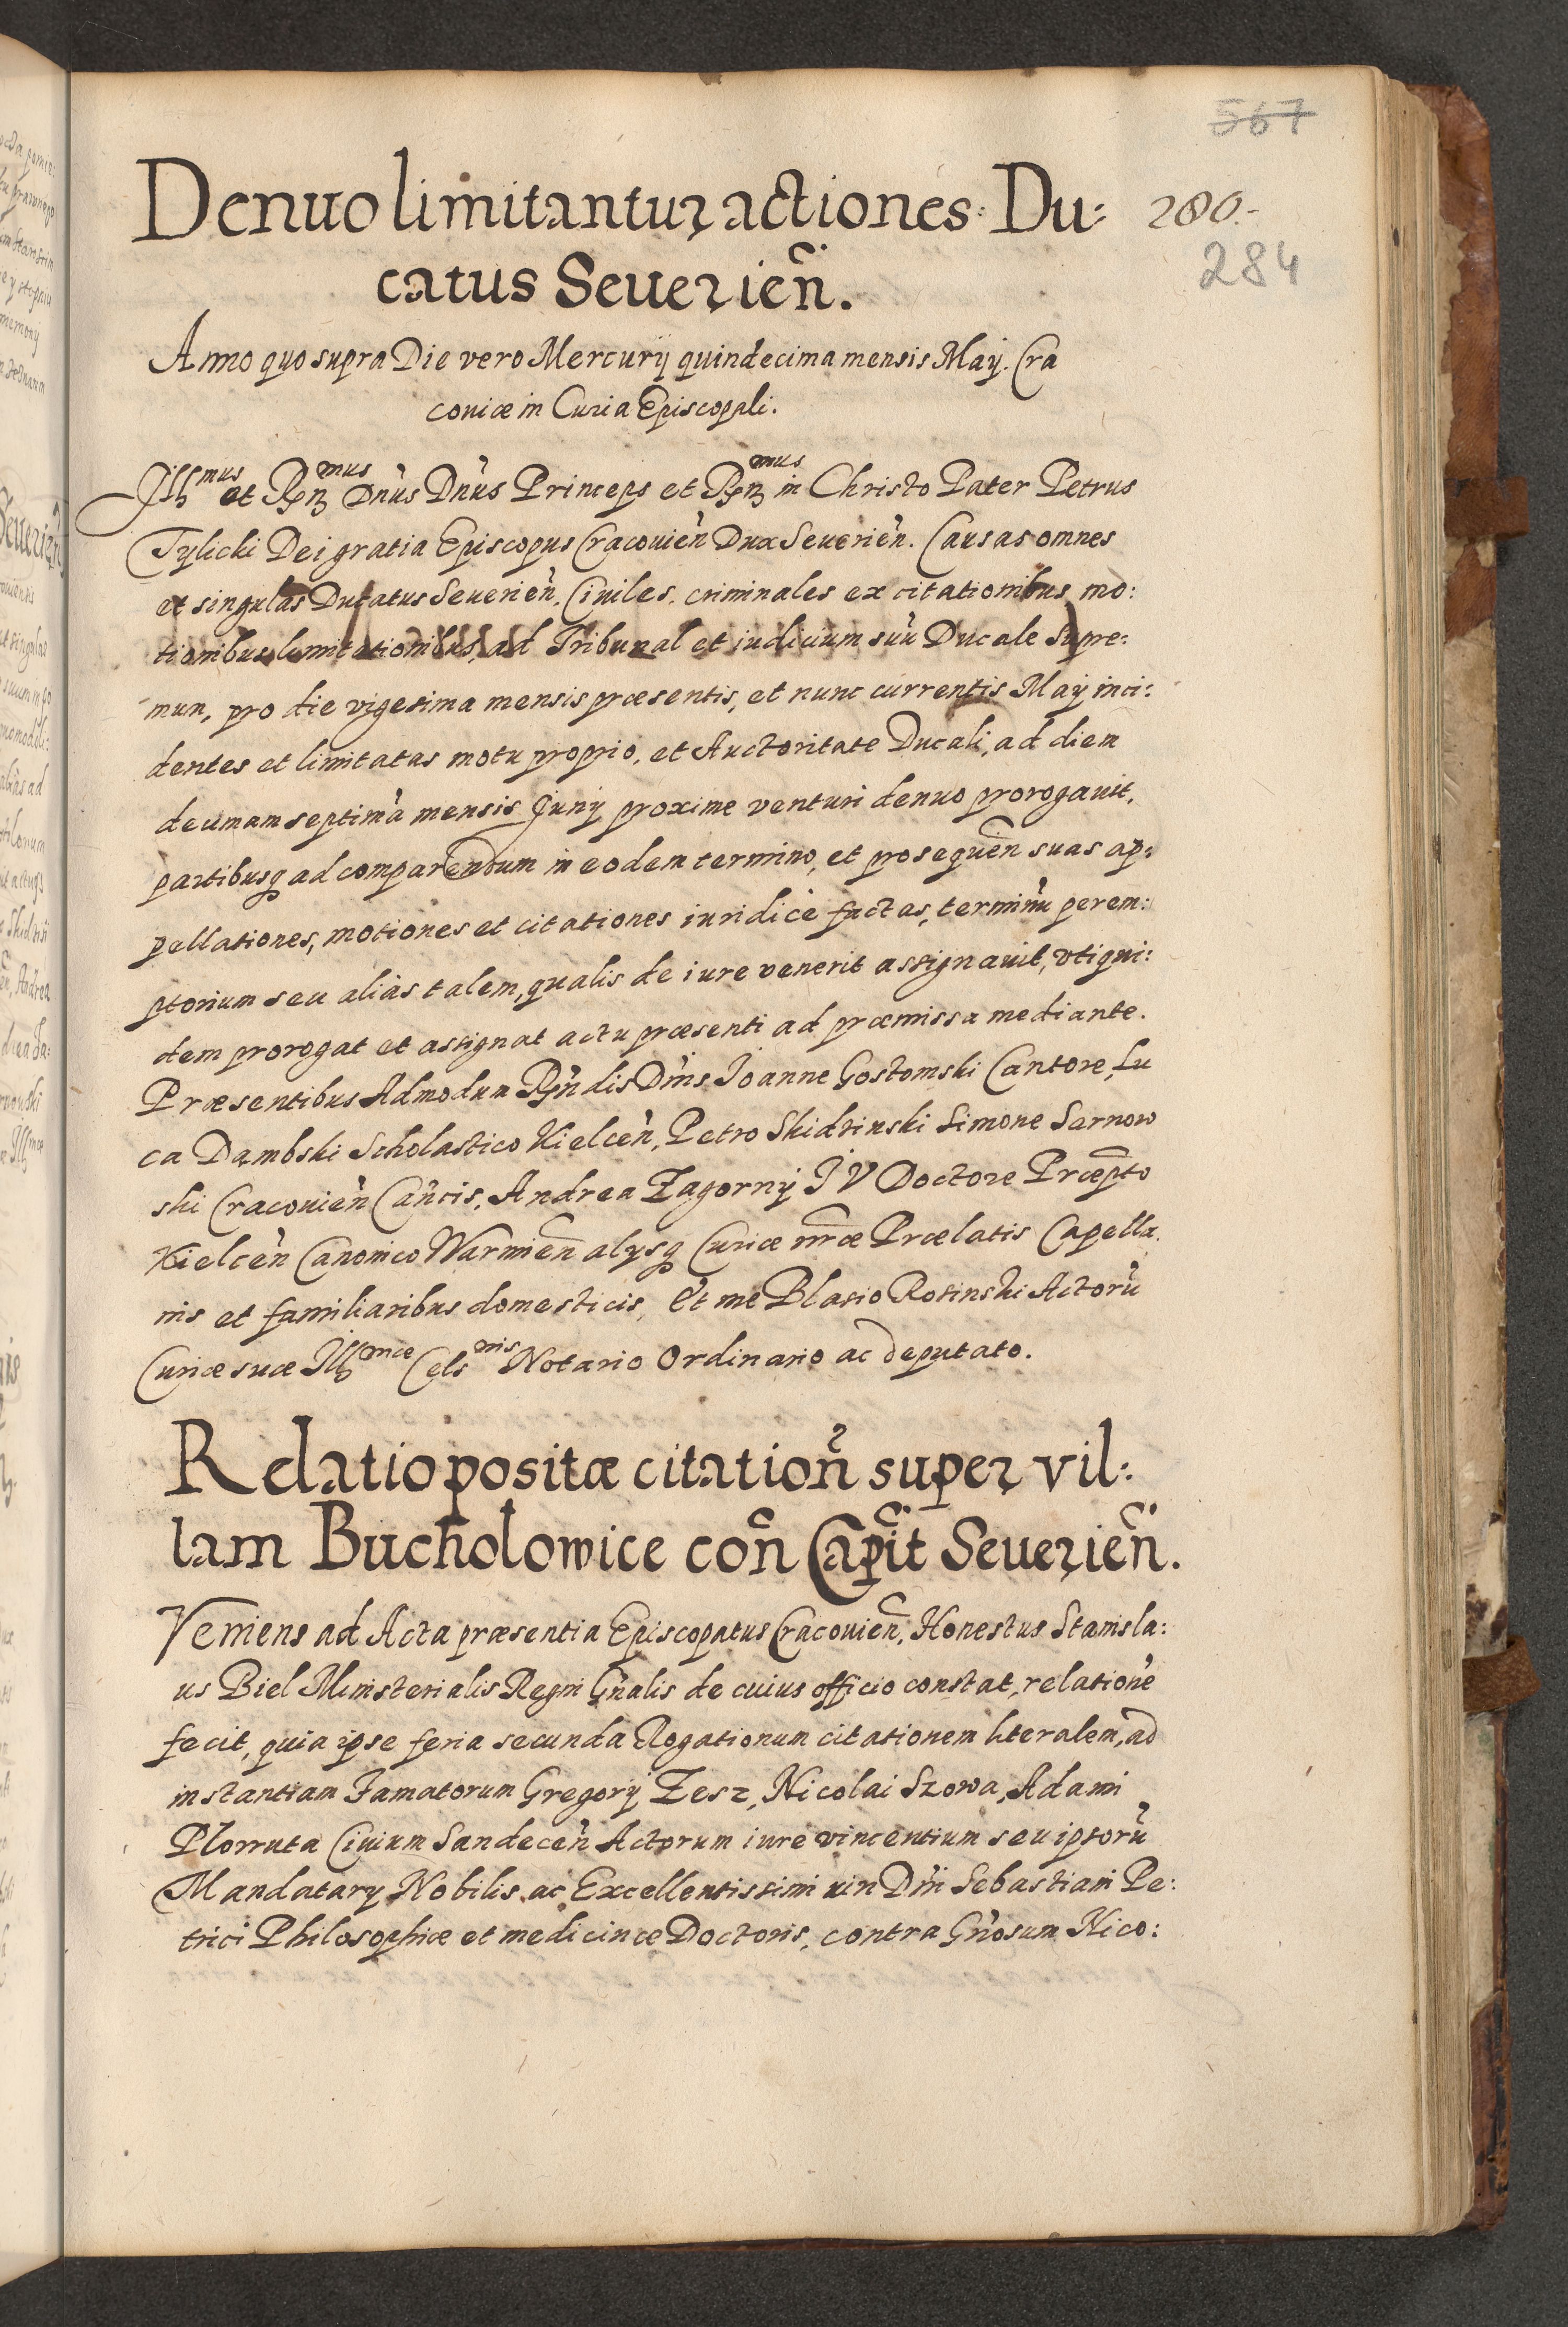 567
Denuo limitantur actiones Du:
280.-
284
catus Seuerień.
Anno quo supra Die vero Mercurÿ quindecima mensis Maÿ. Cra
couiæ in Curia Episcopali.
Illmus et Rndmus Dnus Dnus Princeps et Rndmus in Christo Pater Petrus
Tylicki Dei gratia Episcopus Cracouień Dux Seuerień. Causas omnes
et singulas Ducatus Seuerień. Ciuiles, criminales ex citationibus mo:
tionibus limitationibus, ad Tribunal et iudicium suũ Ducale Supre:
mum, pro die vigesima mensis præsentis, et nunc currentis Maÿ inci:
dentes et limitatas motu proprio, et Auctoritate Ducali, ad diem
decimam septimã mensis Junÿ proxime venturi denuo prorogauit,
partibusq ad comparendum in eodem termino, et prosequeñ suas ap:
pellationes, motiones et citationes iuridicè factas, terminũ perem:
ptorium seu aliàs talem, qualis de iure venerit assignauit, vti qui:
dem prorogat et assignat actu præsenti ad præmissa mediante.
Præsentibus Admodum Rñdis Dñis Joanne Gostomski Cantore, Lu
ca Dambski Scholastico Kielceń, Petro Skidzinski Simone Sarnow
ski Cracouień Cañcis, Andrea Zagornÿ J V Doctore Præpto
Kielceń Canonico Warmień alÿsq Curiæ nræ Prælatis Capella
nis et familiaribus domesticis, Et me Blasio Rosinski Actorũ
Curiæ suæ Illmæ Celsnis Notario Ordinario ac deputato.
Relatio positæ citationñ super vil:
lam Bucholowice coñ Capit Seuerień.
Veniens ad Acta præsentia Episcopatus Cracouień, Honestus Stanisla:
us Biel Ministerialis Regni Gñalis de cuius officio constat, relationẽ
fecit, quia ipse feria secunda Rogationum citationem literalem, ad
instantiam Famatorum Gregorÿ Zesz, Nicolai Szowa, Adami
Plorruta Ciuium Sandeceń Actorum iure vincentium seu ipsorũ
Mandatarÿ Nobilis ac Excellentissimi viri Dñi Sebastiani Pe:
trici Philosophiæ et medicinæ Doctoris, contra Gñosum Nico: